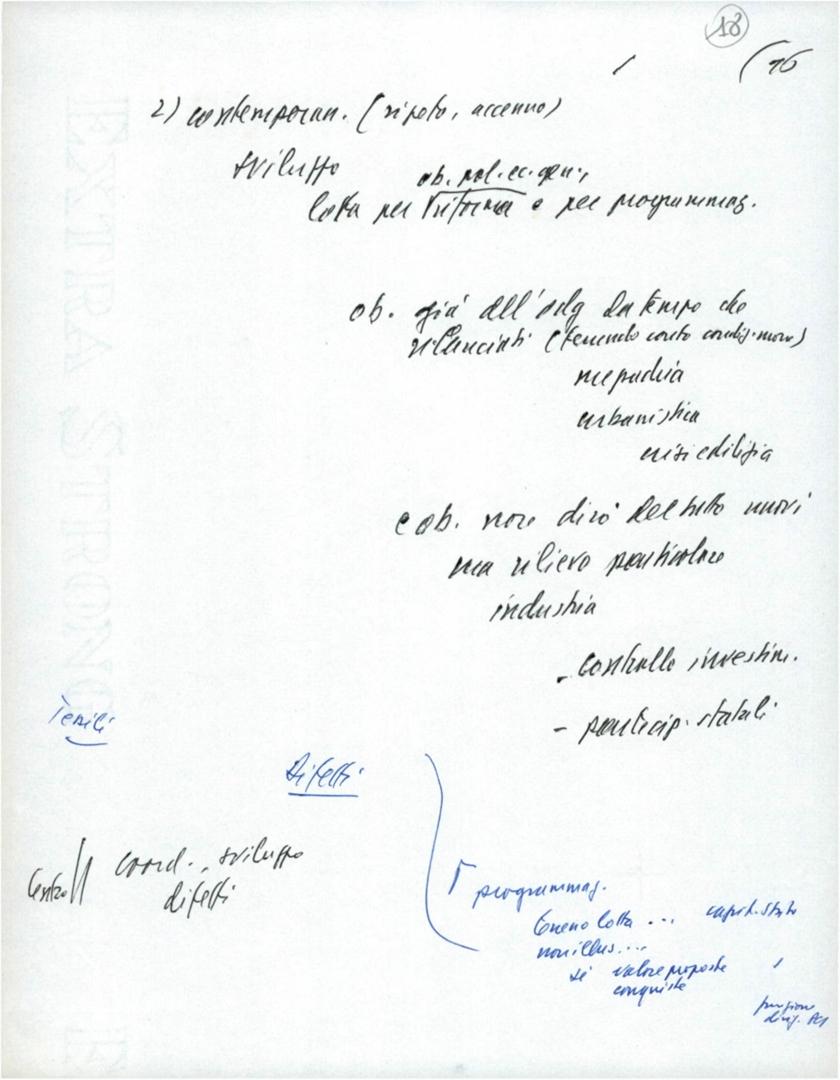 18
16
2) contemporan. (ripeto, accenno)
sviluppo
ob. pol. ec. gen.
lotta per riforma e per programmaz.
ob. già all'odg da tempo che
rilanciati (tenendo conto condiz. nuove)
mezzadria
urbanistica
crisi edilizia
e ob. non dirò del tutto nuovi
ma rilievo particolare
industria
- controllo investim.
- particip. statali
Tessili
Difetti
coord., sviluppo
difetti
programmaz.
terreno lotta ... capit. stato
non illus...
sì valore proposte
conquiste
funzione
dirig. PCI